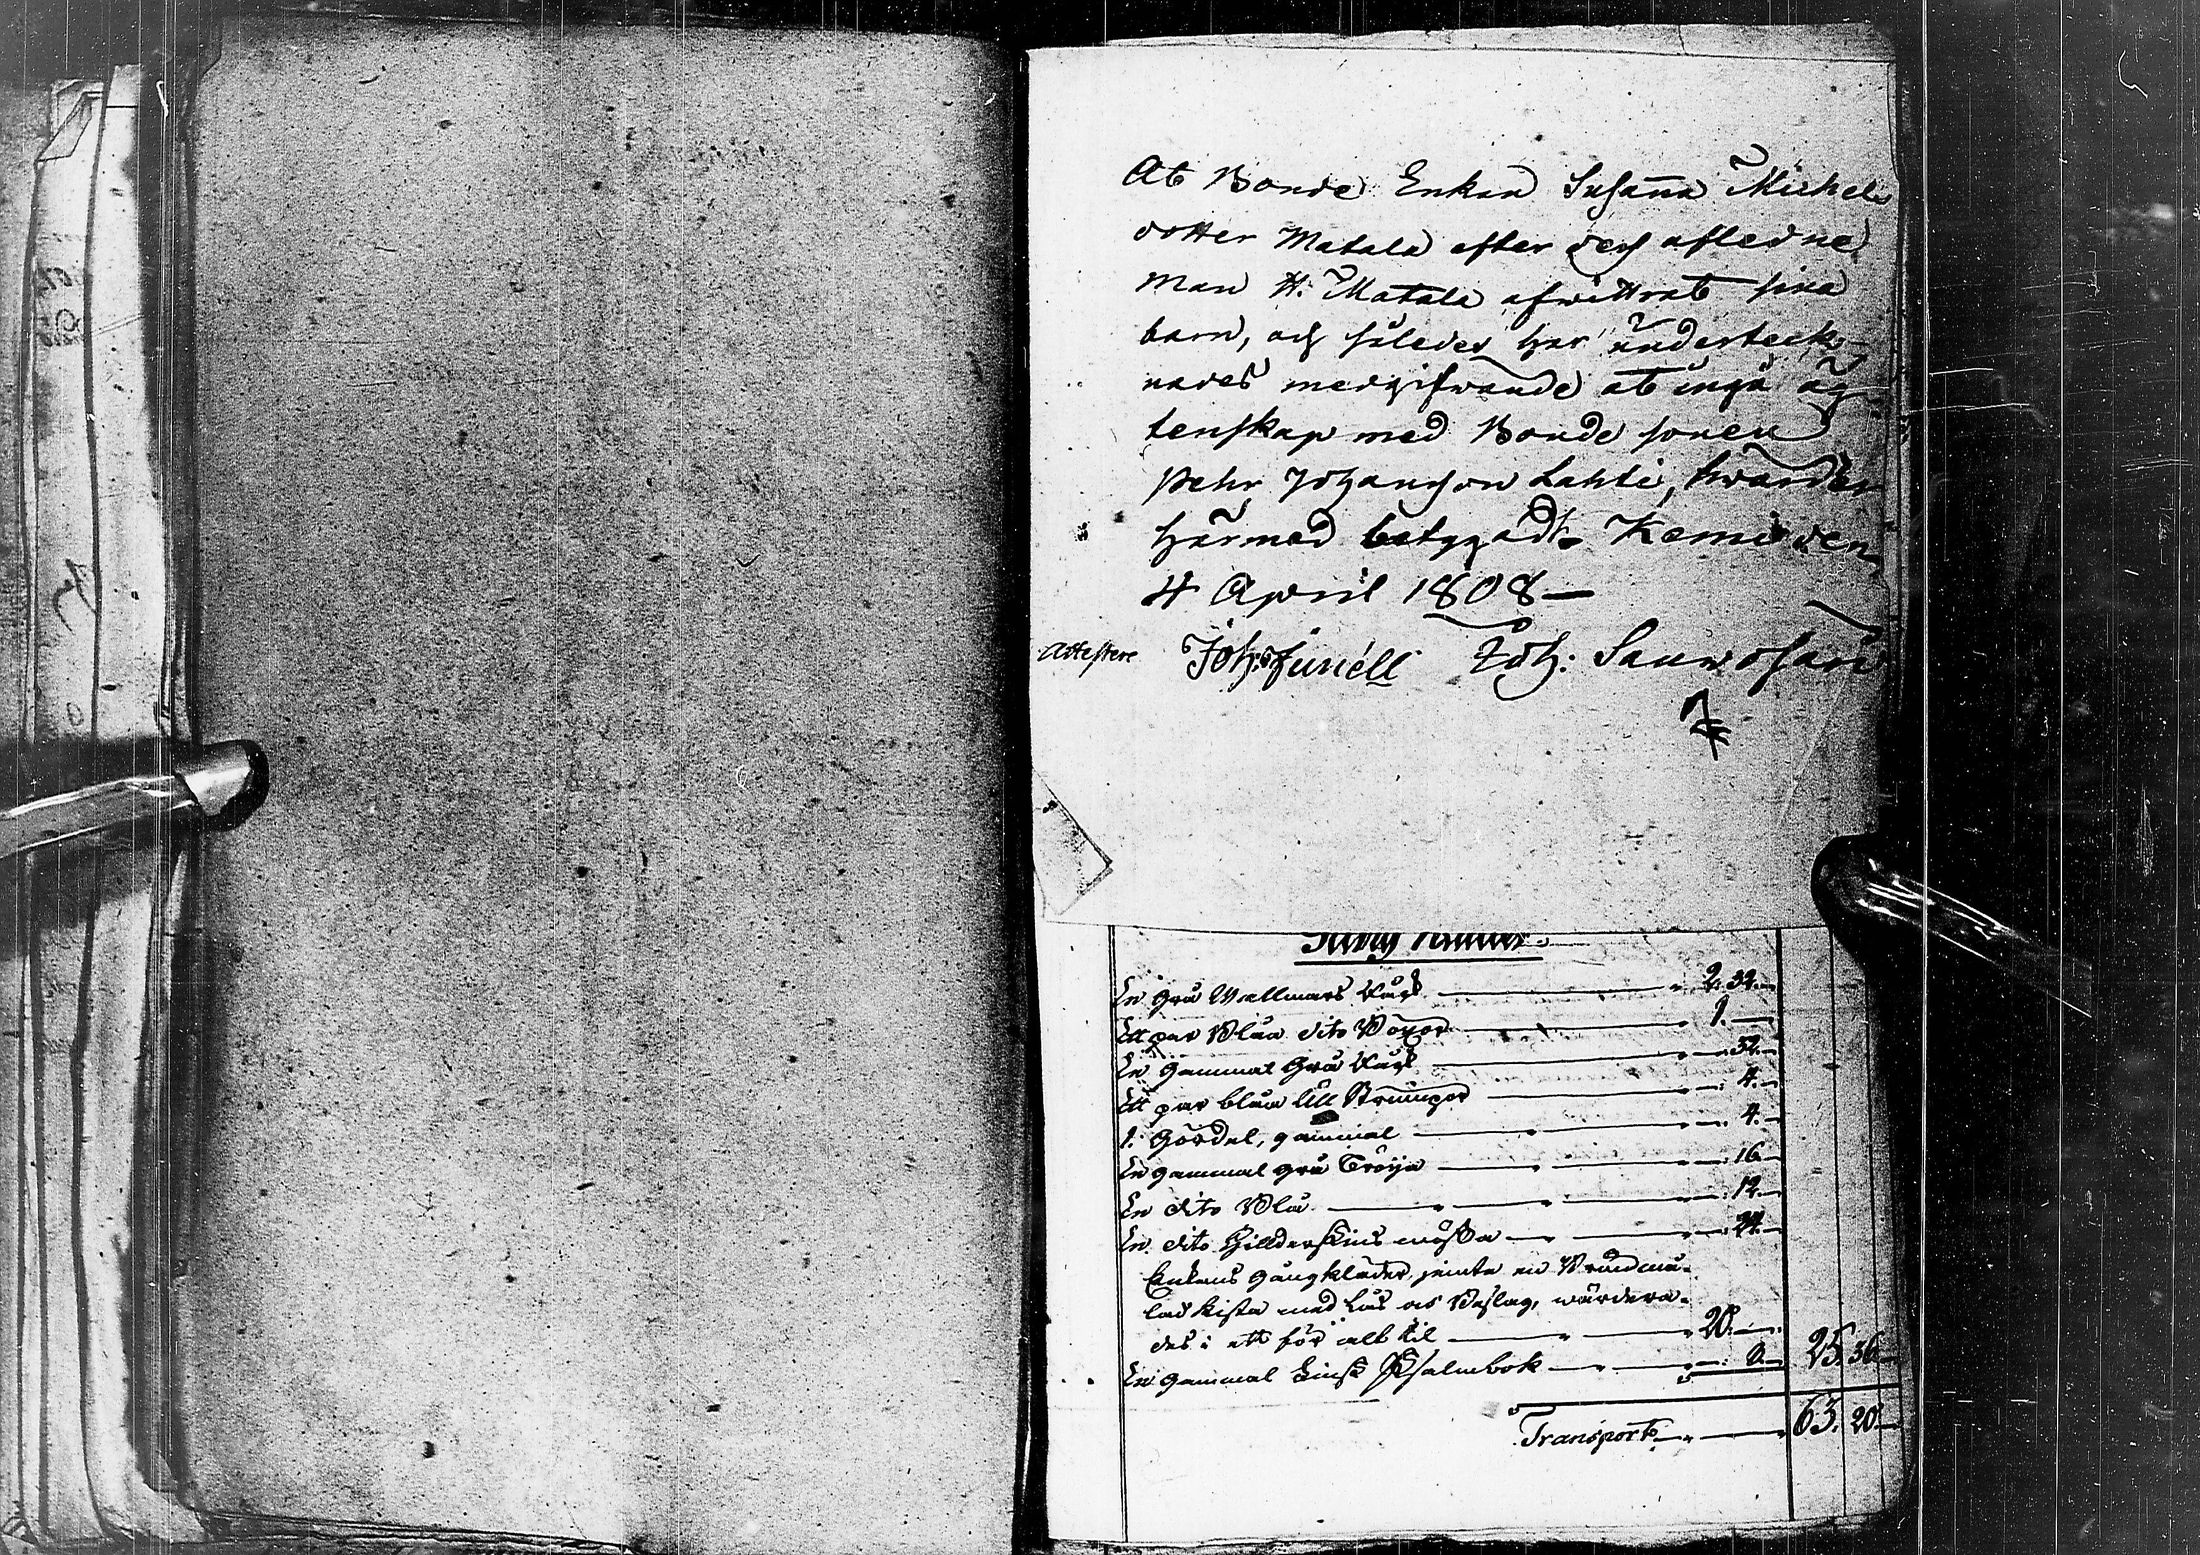 At Bonde Enkan Susanna Michels
dotter Matala efter des afledne
man H. Matala afwittrat sina
barn, och således har underteck-
nades medgifwande at ingå äg-
tenskap med Bonde sonen
Pehr Johansson Lahti, warder
härmed betygadt. Kemi den
4 April 1808 —
Attestere Joh: Junell Joh: Sauwosari
Gång kläder.
En grå Wallmars 2. 32.
Ett par Blåa dito Böxor 1. —
En gammal Grå 32.
Ett par blåa Ull Strumpor 4.
1. Gördel, gammal 4.
En gammal grå Tröija 16
En dito Blå 12.
En dito mössa 24.
Enkans Gångkläder, jemte en Brunmå-
lad kista med Lås oc Beslag, wärdera-
des i ett för alt til 20. —
En gammal Finsk Psalmbok 25. 36.
Transport 63. 20